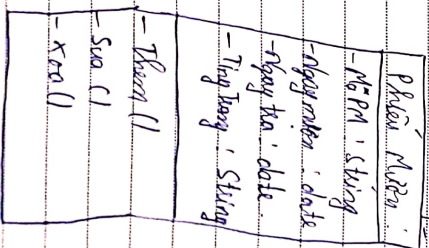 Phiếu Mượn :
- Mã PM : String
- Ngày mượn : date
- Ngày trả : date.
- Tình Trạng : String
- Them ()
- Sua ()
- Xoa ()